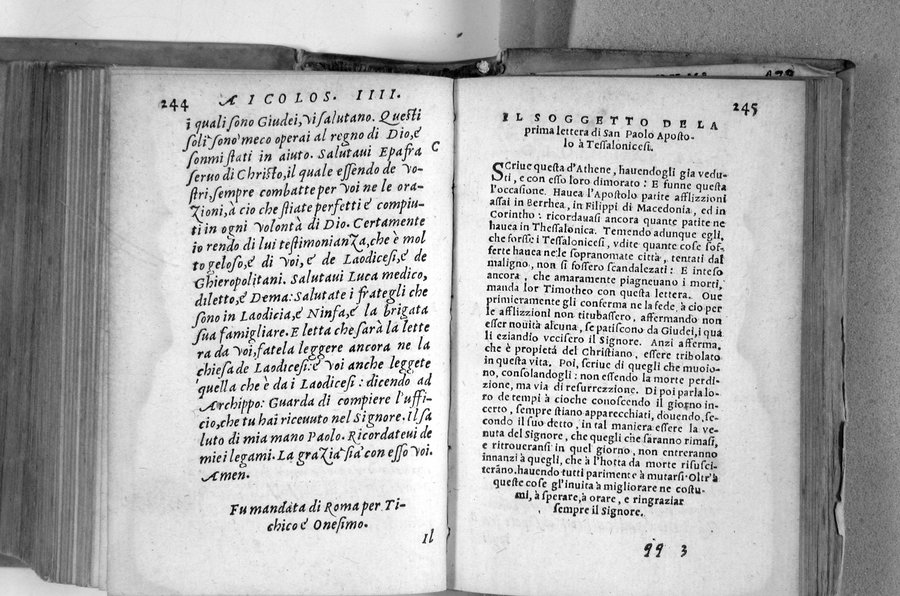 244 A I COLOS. IIII.
i quali sono Giudei, vi salutano. Questi
soli sono meco operai al regno di Dio, é
sonmi stati in aiuto. Salutaui Epafra
seruo di Christo, il quale essendo de vo-
stri, sempre combatte per voi ne le ora-
zioni, à cio che stiate perfetti é compiu-
ti in ogni volontà di Dio. Certamente
io rendo di lui testimonianza, che è mol
to geloso, é di voi, é de Laodicesi, é de
Ghieropolitani. Salutaui Luca medico,
diletto, é Dema: Salutate i frategli che
sono in Laodicia, é Ninfa, é la brigata
sua famigliare. E letta che sarà la lette
ra da voi, fatela leggere ancora ne la
chiesa de Laodicesi: é voi anche leggete
quella che è da i Laodicesi: dicendo ad
Archippo: Guarda di compiere l'uffi-
cio, che tu hai riceuuto nel Signore. Il sa
luto di mia mano Paolo. Ricordateui de
miei legami. La grazia sia con esso voi.
Amen.
C
Fu mandata di Roma per Ti-
chico é Onesimo.
Il
245
IL SOGGETTO DE LA
prima lettera di San Paolo Aposto-
lo à Tessalonicesi.
SCriue questa d'Athene, hauendogli gia vedu-
ti, e con esso loro dimorato: E funne questa
l'occasione. Hauea l'Apostolo patite afflizzioni
assai in Berrhea, in Filippi di Macedonia, ed in
Corintho: ricordauasi ancora quante patite ne
hauea in Thessalonica. Temendo adunque egli,
che forsse i Tessalonicesi, vdite quante cose sof-
ferte hauea ne le sopranomate città, tentati dal
maligno, non si fossero scandalezati: E inteso
ancora, che amaramente piagneuano i morti,
manda lor Timotheo con questa lettera. Oue
primieramente gli conferma ne la fede, à cio per
le afflizzioni non titubassero, affermando non
esser nouità alcuna, se patiscono da Giudei, i qua
li eziandio vccisero il Signore. Anzi afferma,
che è propietà del Christiano, essere tribolato
in questa vita. Poi, scriue di quegli che muoio-
no, consolandogli: non essendo la morte perdi-
zione, ma via di resurrezzione. Di poi parla lo-
ro de tempi à cioche conoscendo il giogno in-
certo, sempre stiano apparecchiati, douendo, se-
condo il suo detto, in tal maniera essere la ve-
nuta del Signore, che quegli che saranno rimasi,
e ritroueransi in quel giorno, non entreranno
innanzi à quegli, che à l'hotta da morte risusci-
terāno, hauendo tutti parimente à mutarsi. Oltr'à
queste cose gl'inuita à migliorare ne costu-
mi, à sperare, à orare, e ringraziar
sempre il Signore.
qq 3